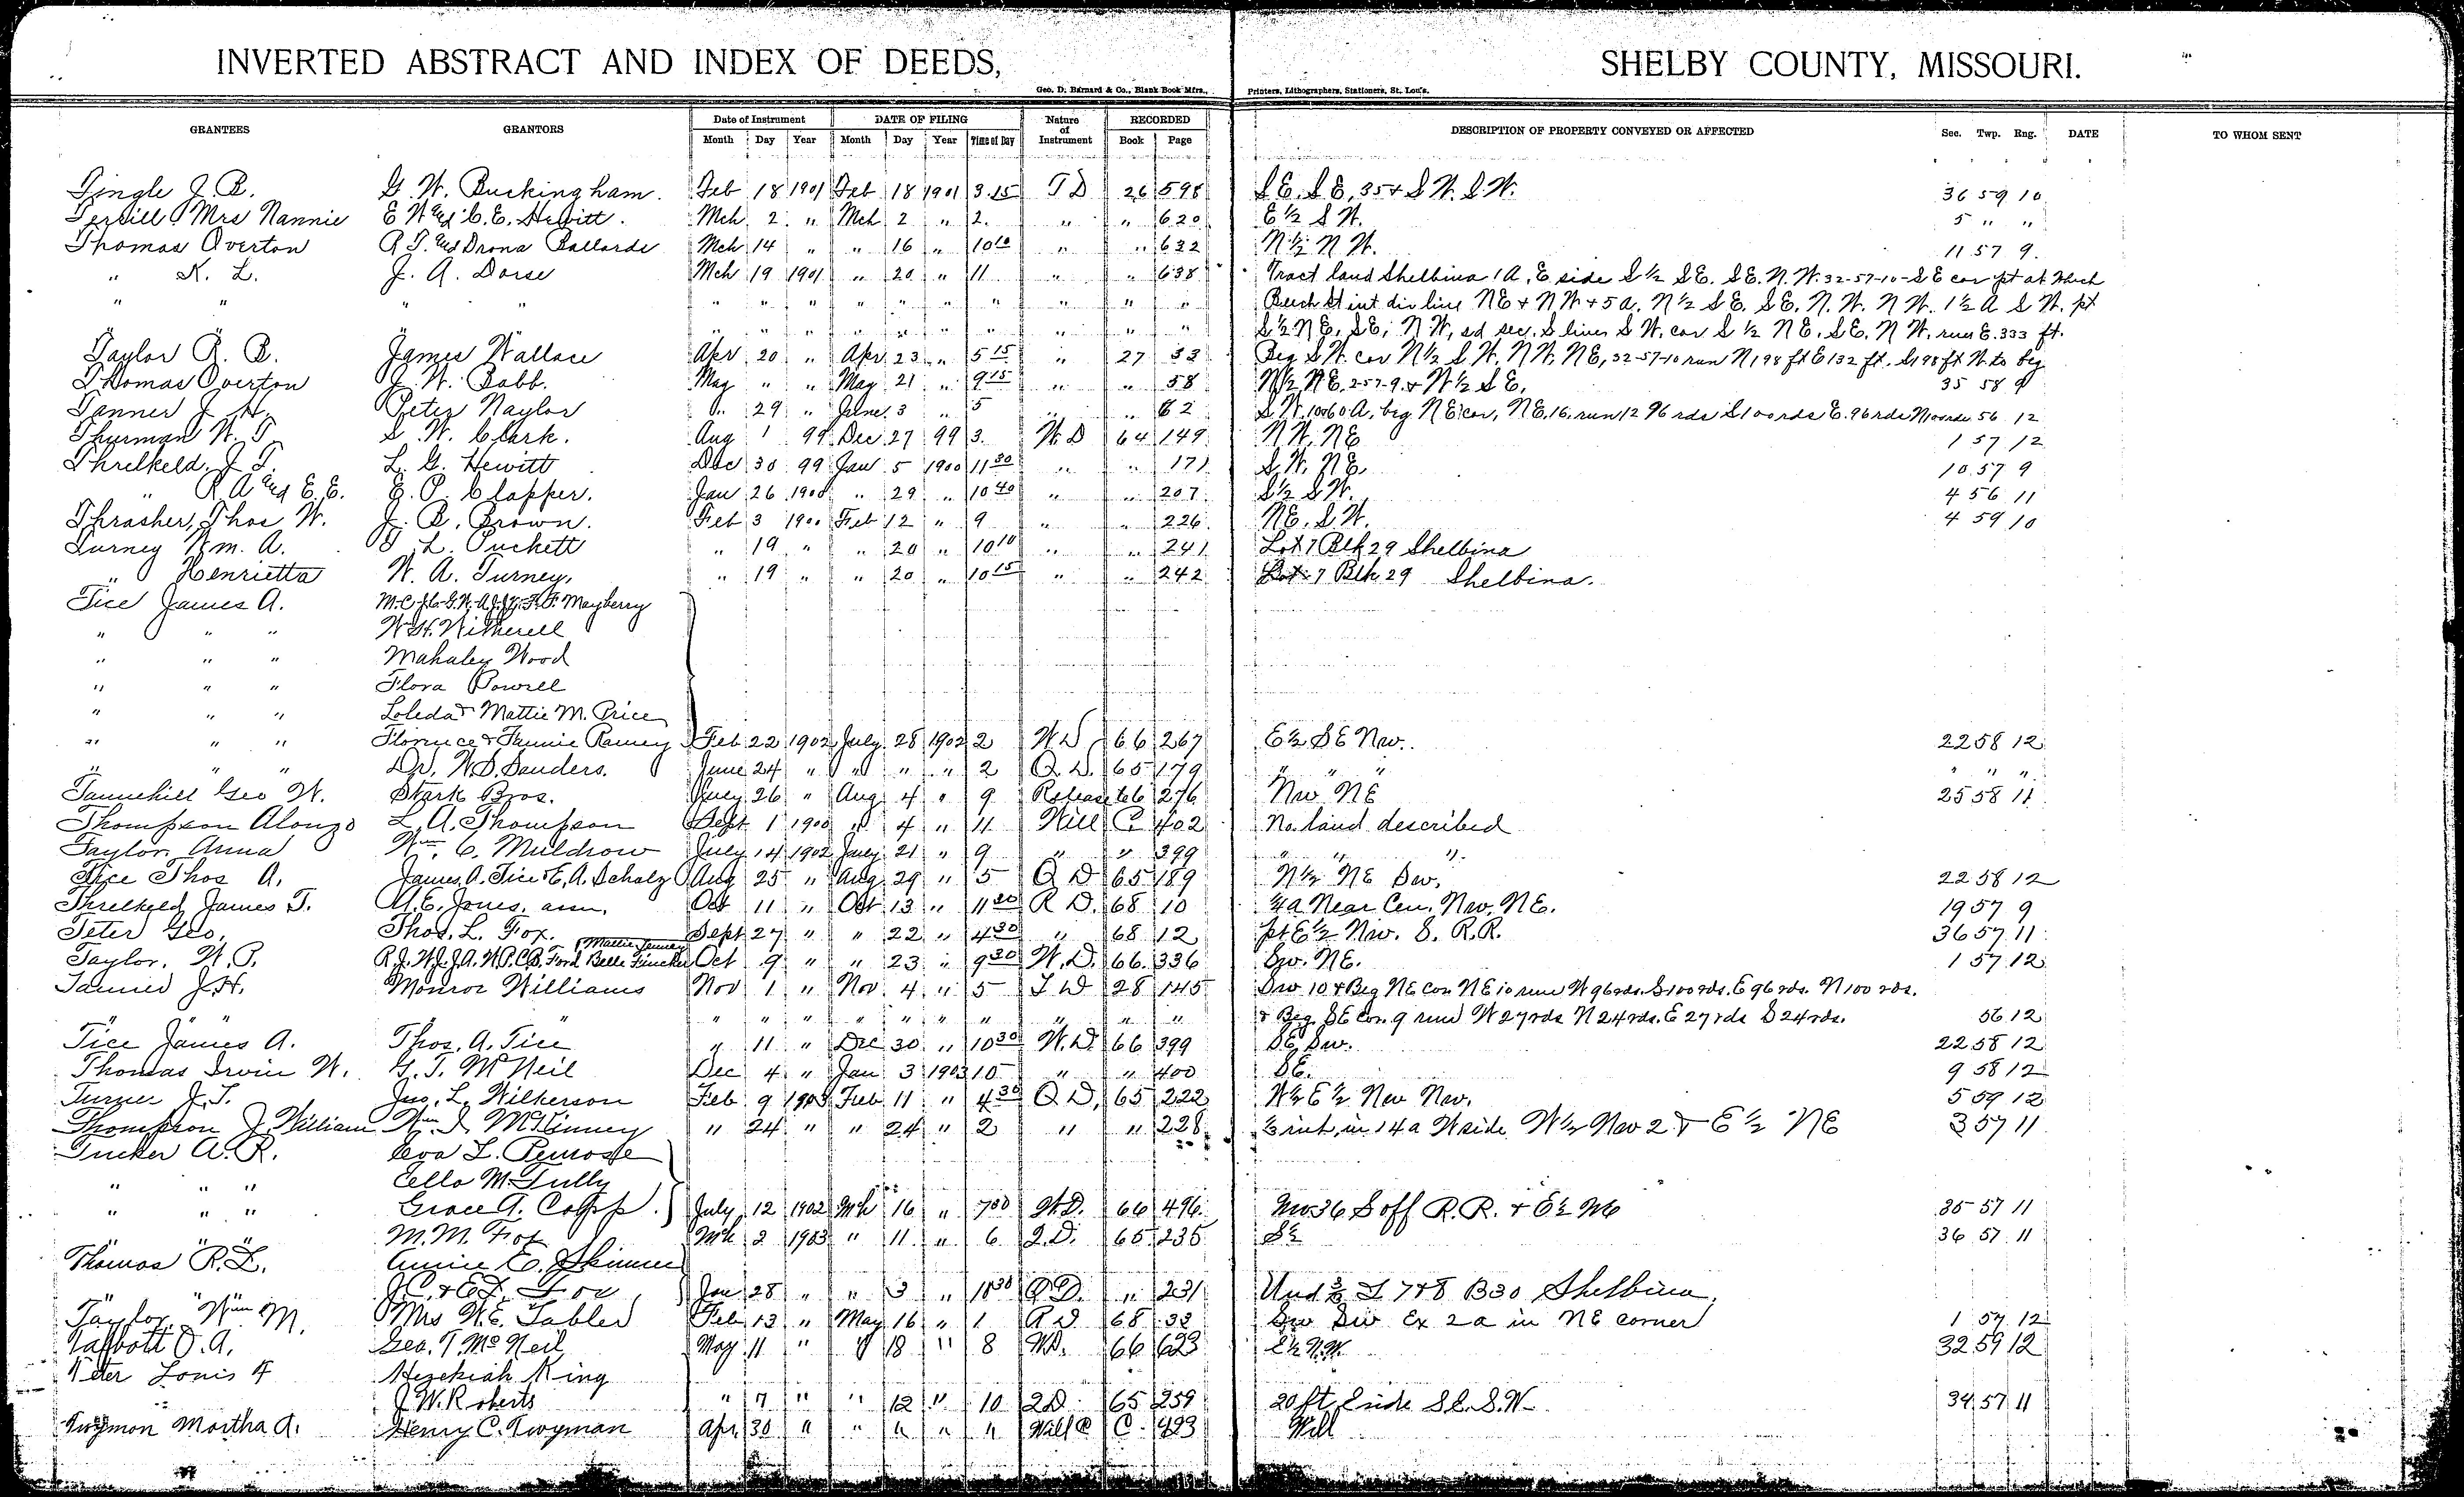 INVERTED ABSTRACT AND INDEX OF DEEDS, SHELBY COUNTY, MISSOURI.
Geo. D. Barnard & Co., Blank Book Mfrs., Printers, Lithographers, Stationers, St. Louis.
GRANTEES GRANTORS Date of Instrument DATE OF FILING Nature of Instrument RECORDED DESCRIPTION OF PROPERTY CONVEYED OR AFFECTED Sec. Twp. Rng. DATE TO WHOM SENT
Month Day Year Month Day Year Time of Day Book Page
Tingle J. B. G. W. Buckingham. Feb 18 1901 Feb 18 1901 3.15 T D 26 598 S E. S E, 35 & S W. S.W. 36 59 10
Terrill Mrs Nannie E W and C. E. Hewitt. Mch 2 " Mch 2 " 2. " " 620 E ½ S W. 5 " "
Thomas Overton R. T. and Drona Ballarde Mch 14 " " 16 " 10 10 " " 632 N ½ N W. 11 57 9.
" K. L. J. A. Dorse Mch 19 1901 " 20 " 11 " " 638 Tract land Shelbina 1 A, E side S ½ S E. S E. N. W. 32-57-10-S E cor pt at which
" " " " " " " " " " " " " " Beech St int div line N E & N W & 5 a. N ½ S E. S E. N. W. N W. 1 ½ A S W. pt
" " " " " " " " " " " " " " S ½ N E, S E, N W, sd sec. S lines S W. cor S ½ N E. S E. N W. runs E. 333 ft.
Taylor R. B. James Wallace Apr 20 " Apr 23 " 5 15 " 27 33 Beg S W. cor N ½ S W. N W. N E, 32-57-10 run N 198 ft E 132 ft. S 198 ft W. to beg
Thomas Overton J. W. Babb. May " " May 21 " 9 15 " " 58 N ½ N E. 2-57-9. & W ½ S E. 35 58 9
Tanner J. H. Peter Naylor " 29 " June 3 " 5 " " 62 S W. 10 & 60 A, beg N E cor, N E, 16, run 96 rds S 100 rds E. 96 rds N 100 rds 56 12
Thurman W. T. S. W. Clark. Aug 1 99 Dec 27 99 3. W. D 64 149 N W. N E 1 57 12
Threlkeld. J T. L. G. Hewitt Dec 30 99 Jan 5 1900 11 30 " " 171 S. W. N E. 10 57 9
" R A and E. E. E. P. Clapper. Jan 26 1900 " 29 " 10 40 " " 207 S ½ S W. 4 56 11
Thrasher, Thos W. J. B. Brown. Feb 3 1900 Feb 12 " 9 " " 226 N E. S. W. 4 59 10
Turney Wm. A. T. L. Puckett " 19 " " 20 " 10 10 " " 241 Lot 7 Blk 29 Shelbina
" Henrietta W. A. Turney, " 19 " " 20 " 10 15 " " 242 Lot 7 Blk 29 Shelbina.
Tice James A. Mayberry
" " " W. H. Witherell
" " " Mahaley Wood
" " " Flora Powell
" " " Loleda & Mattie M. Price
" " " Florence & Fannie Ramey Feb 22 1902 July 28 1902 2 W D 66 267 E ½ S E Nw. 22 58 12
" " " Dr. W. D. Sanders. June 24 " " " " 2 Q. D. 65 179 " " " " " "
Tannehill Geo W. Stark Bros. July 26 " Aug 4 " 9 Release 66 276 Nw N E 25 58 11
Thompson Alonzo L. A. Thompson Sept 1 1900 " 4 " 11 Will C 402 No land described
Taylor Anna Wm. C. Muldrow July 14 1902 July 21 " 9 " " 399 " " "
Tice Thos A. James A. Tice & E. A. Scholz Aug 25 " Aug 29 " 5 Q D 65 189 N ½ N E Sw. 22 58 12
Threlkeld James T. M. E. Jones, Oct 11 " Oct 13 " 11 30 R D. 68 10 ¼ a Near Cen. Nw. N E. 19 57 9
Teter Geo. Thos. L. Fox. Sept 27 " " 22 " 4 30 " 68 12 pt E ½ Nw. S. R. R. 36 57 11
Taylor. W. P. R. J. W. J. J. A. W. P. C. B. Ford Belle Oct 9 " " 23 " 9 30 W. D. 66 336 Sw. N E. 1 57 12
Tanner J. H. Monroe Williams Nov 1 " Nov. 4 " 5 T D 28 145 Sw 10 & Beg N E Cor N E 10 run W 96 rds. S 100 rds. E 96 rds. N 100 rds.
" " " " " " " " " " " " " & Beg S E Cor. 9 run W 27 rds N 24 rds. E 27 rds S 24 rds. 56 12
Tice James A. Thos. A. Tice " 11 " Dec 30 " 10 30 W. D. 66 399 S E Sw. 22 58 12
Thomas Irvin W. G. T. McNeil Dec 4 " Jan 3 1903 10 " " 400 S E. 9 58 12
Turner J. T. Jno. L. Wilkerson Feb 9 1903 Feb 11 " 4 30 Q D. 65 222 W ½ E ½ Nw Nw. 5 59 12
Thompson J. William Wm. I. McKinney " 24 " " 24 " 2 " " 228 int. in 14 a W side W ½ Nw 2 & E ½ N E 3 57 11
Tucker A. R. Eva L. Penrose
" " " Cella M. Tully
" " " Grace A. Capp. July 12 1902 Mch 16 " 7 00 W. D. 66 496 Nw 36 S off R. R. & E ½ N E 35 57 11
" " " M. M. Fox Mch 2 1903 " 11 " 6 Q. D. 65 235 S ½ 36 57 11
Thomas R. L. Annie E. Skinner
" " J. C. & E. D. Fox Jan 28 " " 3 " 10 30 Q D. " 231 Und ⅔ L 7 & 8 B 30 Shelbina.
Taylor, Wm M. Mrs W. E. Tabler Feb 13 " May 16 " 1 R D 68 33 Sw Sw Ex 2 a in N E corner 1 57 12
Talbott O. A. Geo. T. McNeil May 11 " " 18 " 8 W D. 66 623 E ½ N. W. 32 59 12
Teter Louis F Hezekiah King
J. W. Roberts " 7 " " 12 " 10 2 D 65 259 20 ft E side S E. S. W 34 57 11
Twyman Martha A. Henry C. Twyman Apr. 30 " " " " " Will C 493 Will